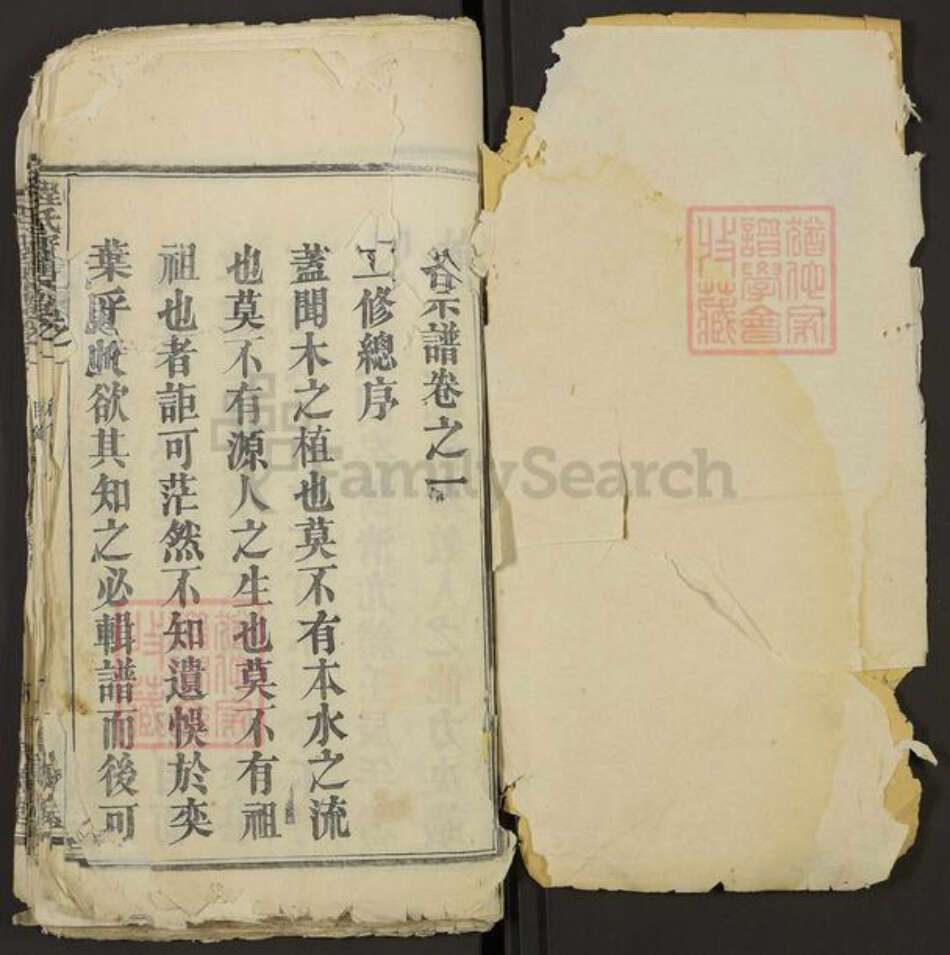 宗譜卷之一
修總序
蓋聞木之植也莫不有本水之流
也莫不有源人之生也莫不有祖
祖也者詎可茫然不知遺悞於奕
葉乎欲其知之必輯譜而後可
氏
卷之
FamilySearch
譜學會
收藏